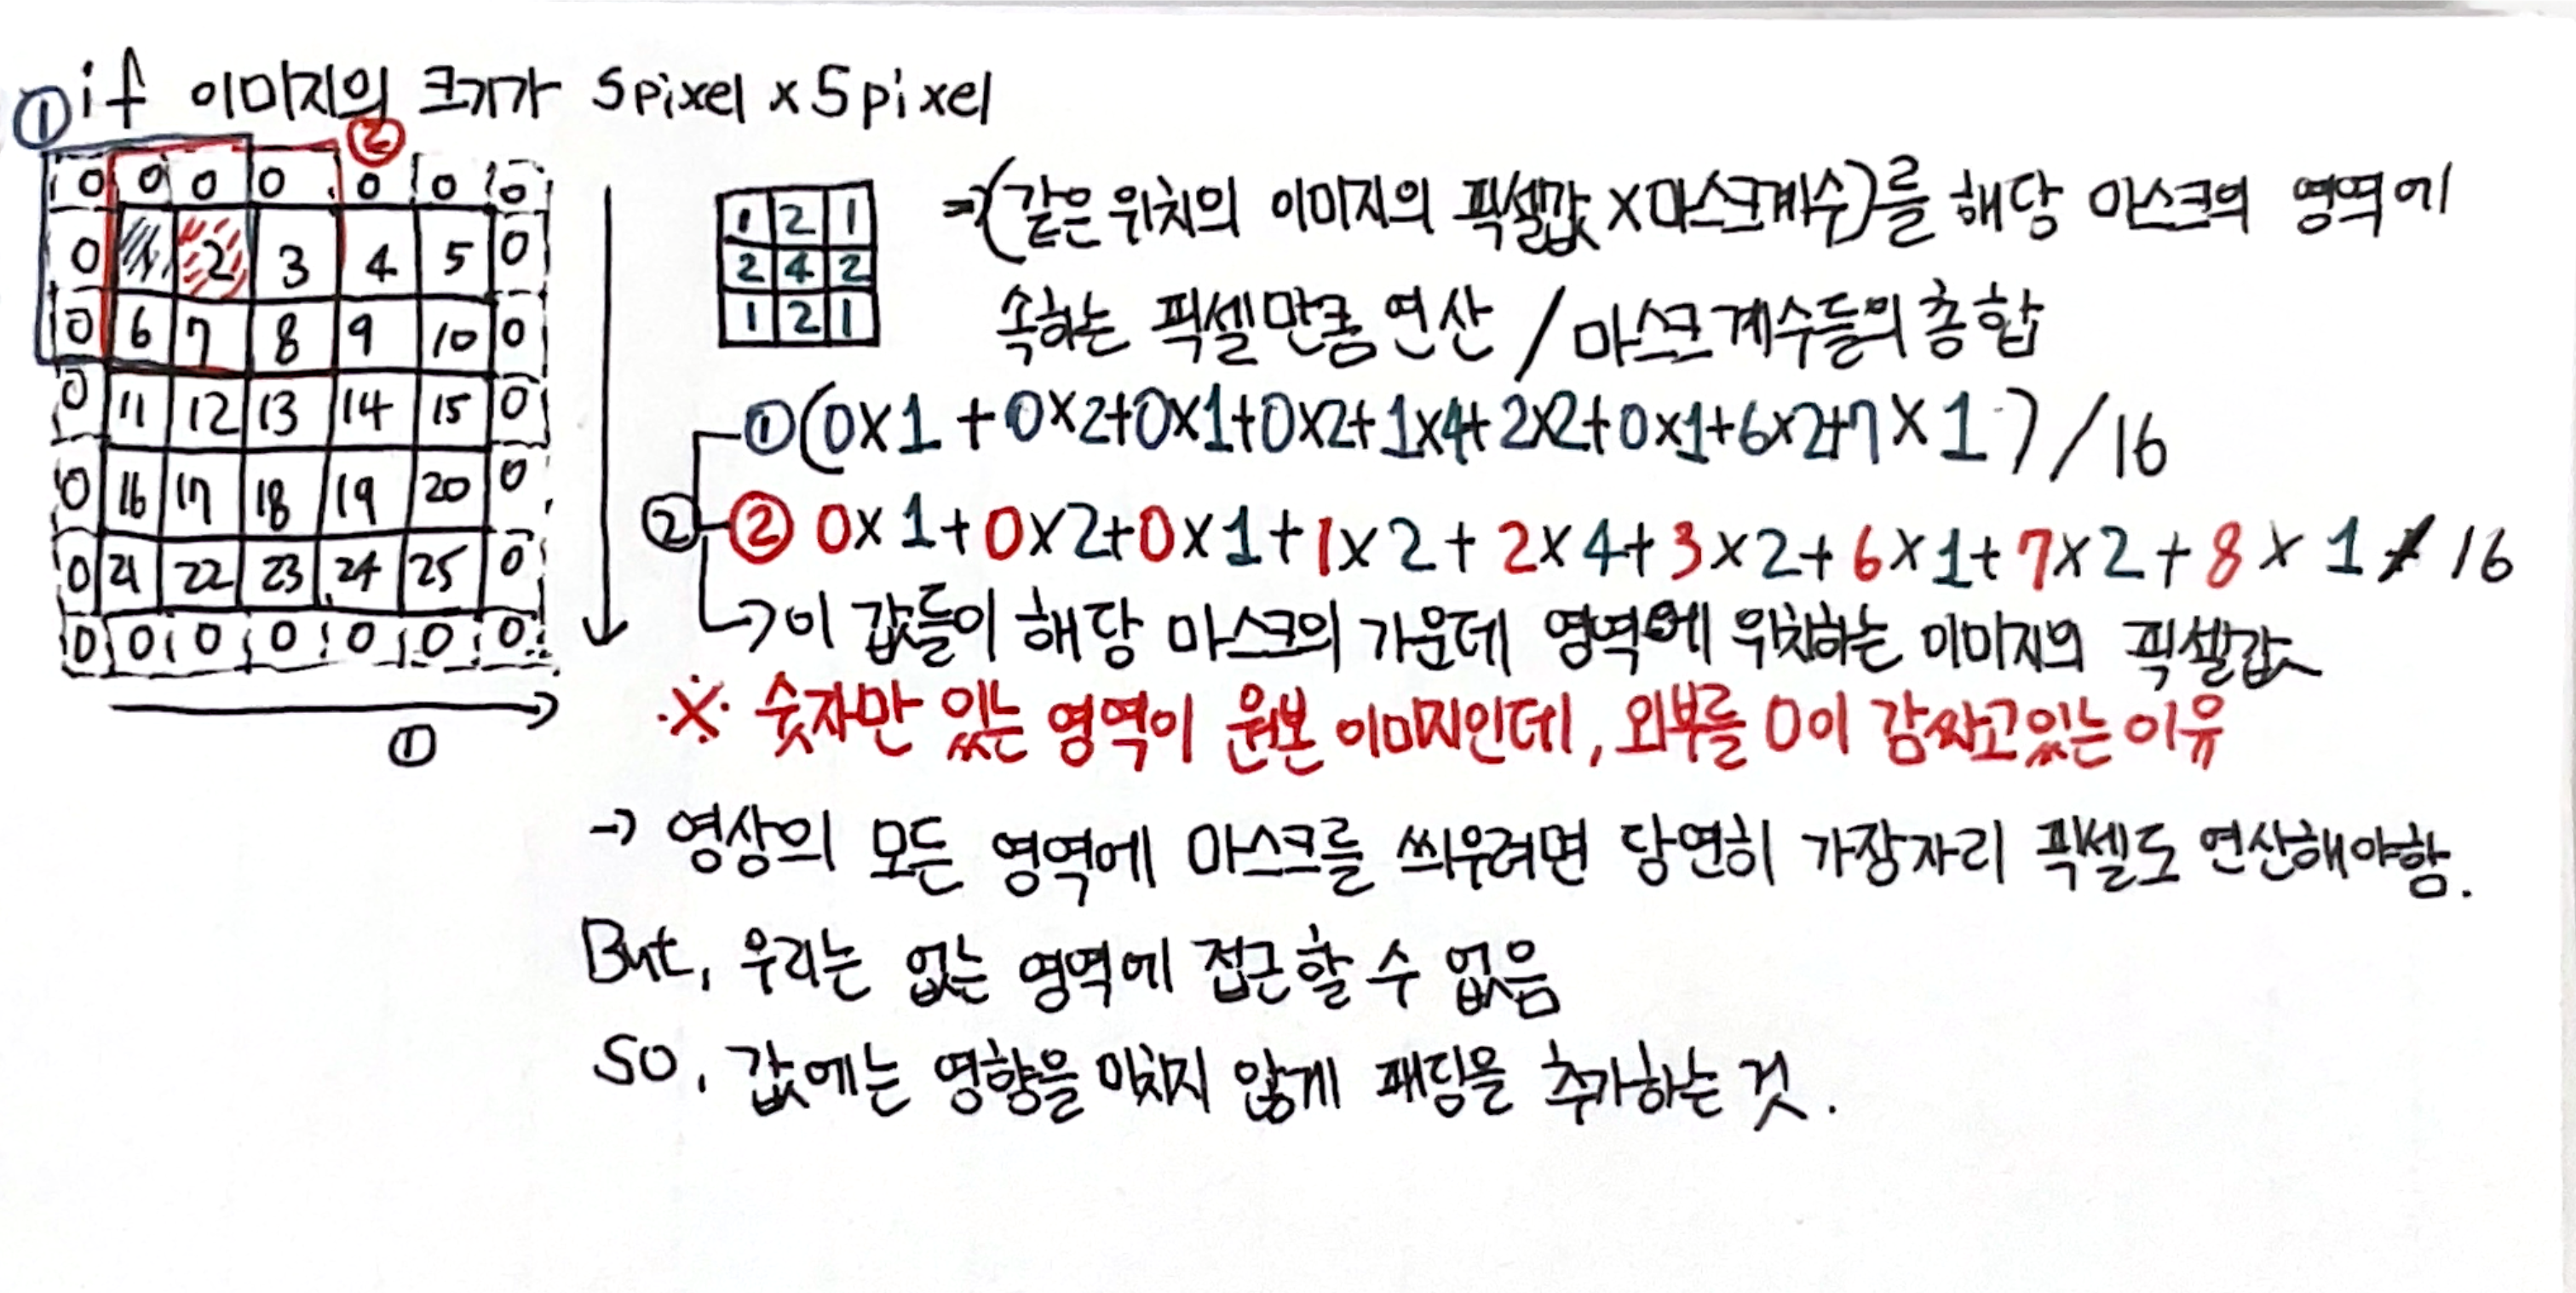 ① if 이미지의 크기가 5pixel x 5pixel
②
0 0 0 0 0 0 0
0 1 2 3 4 5 0
0 6 7 8 9 10 0
0 11 12 13 14 15 0
0 16 17 18 19 20 0
0 21 22 23 24 25 0
0 0 0 0 0 0 0
①
1 2 1
2 4 2
1 2 1
⇒(같은 위치의 이미지의 픽셀값 x마스크계수)를 해당 마스크의 영역에
속하는 픽셀만큼 연산 / 마스크 계수들의 총합
①(0x1 + 0x2+0x1+0x2+1x4+2x2+0x1+6x2+7x1)/16
② ② 0x1+0x2+0x1+1x2+2x4+3x2+6x1+7x2+8x1 / 16
→이 값들이 해당 마스크의 가운데 영역에 위치하는 이미지의 픽셀값
※ 숫자만 있는 영역이 원본 이미지인데, 외부를 0이 감싸고있는 이유
→ 영상의 모든 영역에 마스크를 씌우려면 당연히 가장자리 픽셀도 연산해야함.
But, 우리는 없는 영역에 접근할 수 없음
So, 값에는 영향을 미치지 않게 패딩을 추가하는 것.